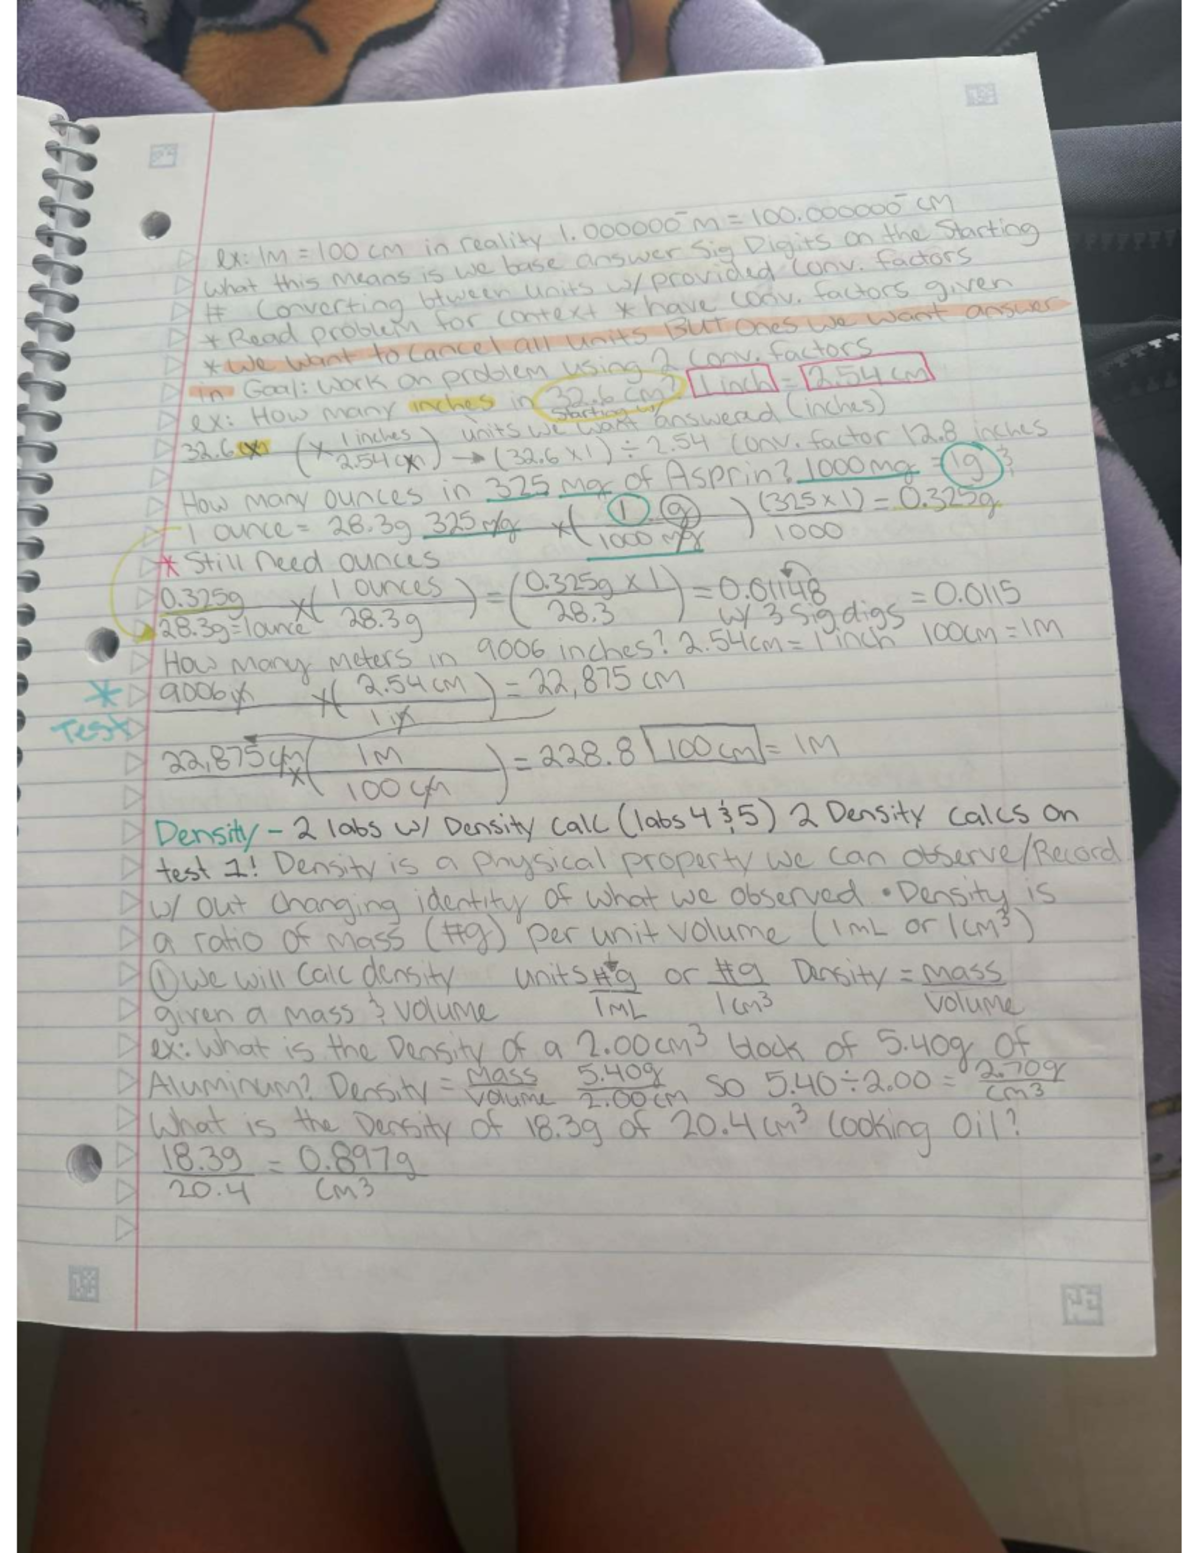 ex: 1M = 100 cm in reality 1.000000‾ M = 100.000000‾ cm
What this means is we base answer Sig Digits on the Starting
# Converting btween units w/provided Conv. factors
* Read problem for context * have conv. factors given
* We want to cancel all units BUT ones we want answer
in Goal: Work on problem using 2 Conv. factors
ex: How many inches in 32.6 cm? 1 inch = 2.54 cm
Starting
32.6 cm (x 1 inches / 2.54 cm) → (32.6 x 1) ÷ 2.54 conv. factor 12.8 inches
units we want answerad (inches)
How many ounces in 325 mg of Asprin? 1000 mg = 1g &
1 ounce = 28.3g 325 mg x (1 g / 1000 mg) (325 x 1) / 1000 = 0.325g
* Still Need ounces
0.325g x (1 ounces / 28.3g) = (0.325g x 1 / 28.3) = 0.01148 = 0.0115
28.3g = 1ounce w/ 3 sig digs
How many Meters in 9006 inches? 2.54cm = 1 inch 100cm = 1M
* 9006 in x (2.54 cm / 1 in) = 22,875 cm
Test
22,875 cm x (1M / 100 cm) = 228.8 100 cm = 1M
Density - 2 labs w/ Density Calc (labs 4 & 5) 2 Density calcs on
test 1! Density is a Physical property we can observe/Record
w/ out changing identity of what we observed • Density is
a ratio of mass (#g) per unit volume (1mL or 1cm³)
① We will calc density units #g / 1mL or #g / 1cm³ Density = mass / volume
given a mass & volume
ex: What is the Density of a 2.00cm³ block of 5.40g of
Aluminum? Density = mass / volume 5.40g / 2.00cm so 5.40 ÷ 2.00 = 2.70g / cm³
What is the Density of 18.3g of 20.4 cm³ Cooking Oil?
18.3g / 20.4 = 0.897g / cm³